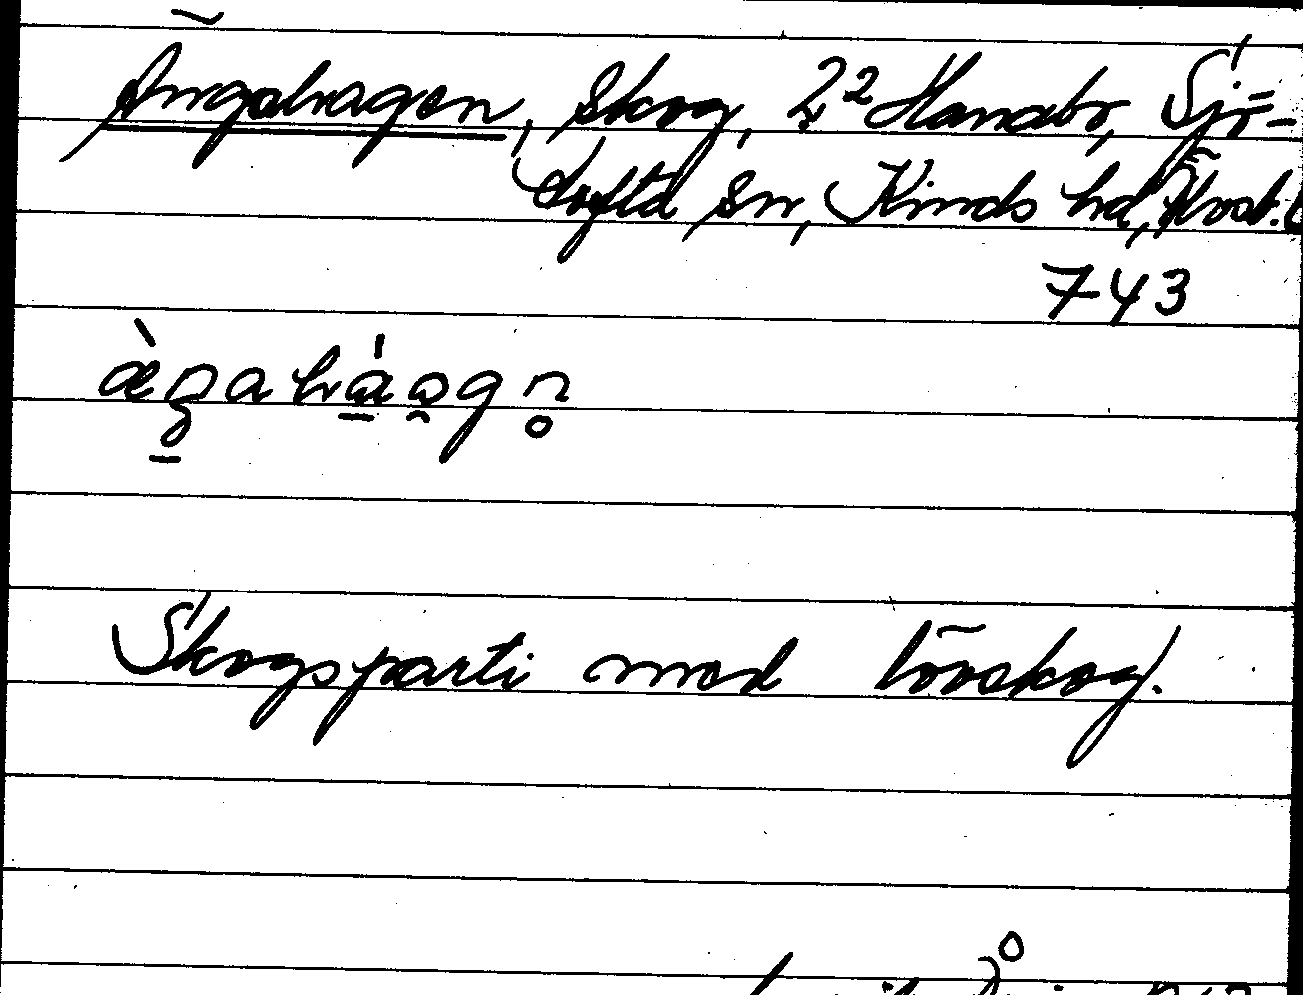 Ängahagen, Skog, 2² Hanabo, Sjö-
tofta sn, Kinds hd,
743
Skogsparti med lövskog.